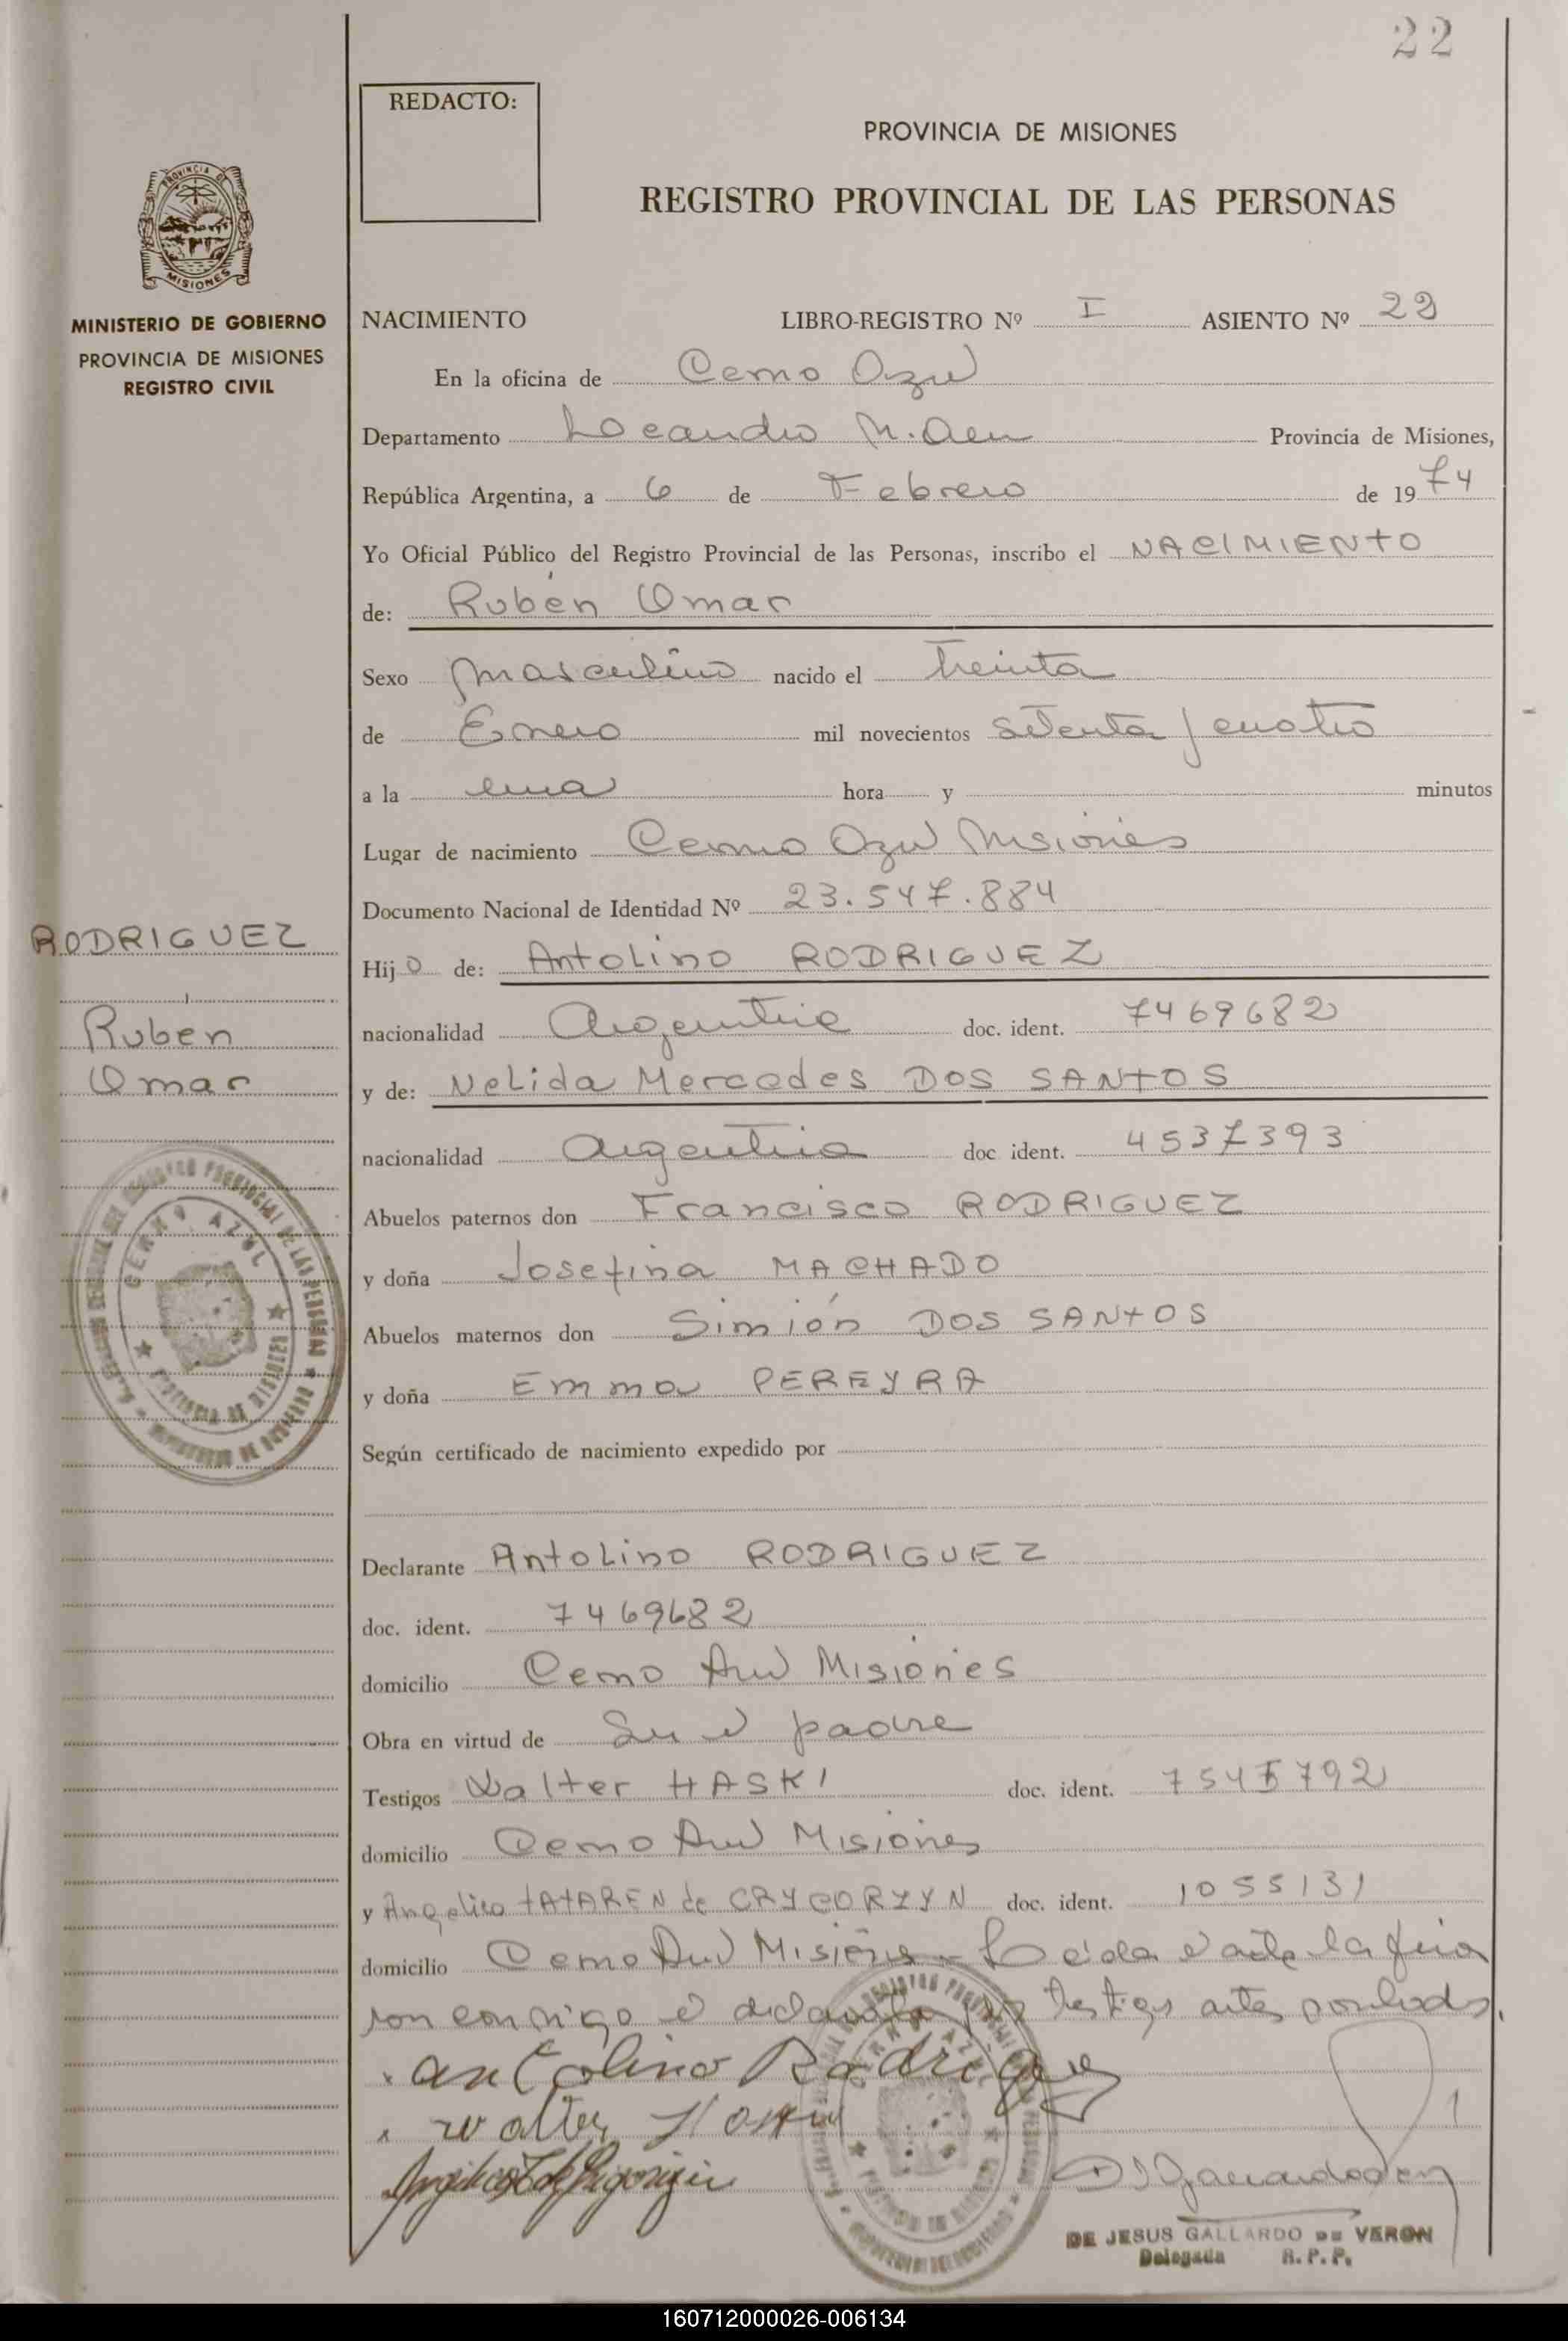 22
REDACTO:
PROVINCIA DE MISIONES
REGISTRO PROVINCIAL DE LAS PERSONAS
PROVINCIA DE
MISIONES
MINISTERIO DE GOBIERNO
PROVINCIA DE MISIONES
REGISTRO CIVIL
NACIMIENTO LIBRO-REGISTRO Nº I ASIENTO Nº 22
En la oficina de Cerro Azul
Departamento Leandro N. Alem Provincia de Misiones,
República Argentina, a 6 de Febrero de 1974
Yo Oficial Público del Registro Provincial de las Personas, inscribo el NACIMIENTO
de: Rubén Omar
Sexo masculino nacido el Treinta
de Enero mil novecientos setenta y cuatro
a la una hora y minutos
Lugar de nacimiento Cerro Azul Misiones
Documento Nacional de Identidad Nº 23.547.884
RODRIGUEZ
Ruben
Omar
Hijo de: Antolino RODRIGUEZ
nacionalidad Argentina doc. ident. 7469682
y de: Nelida Mercedes DOS SANTOS
nacionalidad Argentina doc ident. 4537393
Abuelos paternos don Francisco RODRIGUEZ
y doña Josefina MACHADO
Abuelos maternos don Simión DOS SANTOS
y doña Emma PEREYRA
CERRO AZUL
Según certificado de nacimiento expedido por
Declarante Antolino RODRIGUEZ
doc. ident. 7469682
domicilio Cerro Azul Misiones
Obra en virtud de Ser el padre
Testigos Walter HASKI doc. ident. 7545792
domicilio Cerro Azul Misiones
y Angelica TATAREN de CRYCORZYN doc. ident. 1055131
domicilio Cerro Azul Misiones - Leida el acta la firman
con migo el declarante y los testigos antes nombrados.
Antolino Rodriguez
Walter Haski
DE JESUS GALLARDO DE VERON
Delegada R.P.P.
160712000026-006134